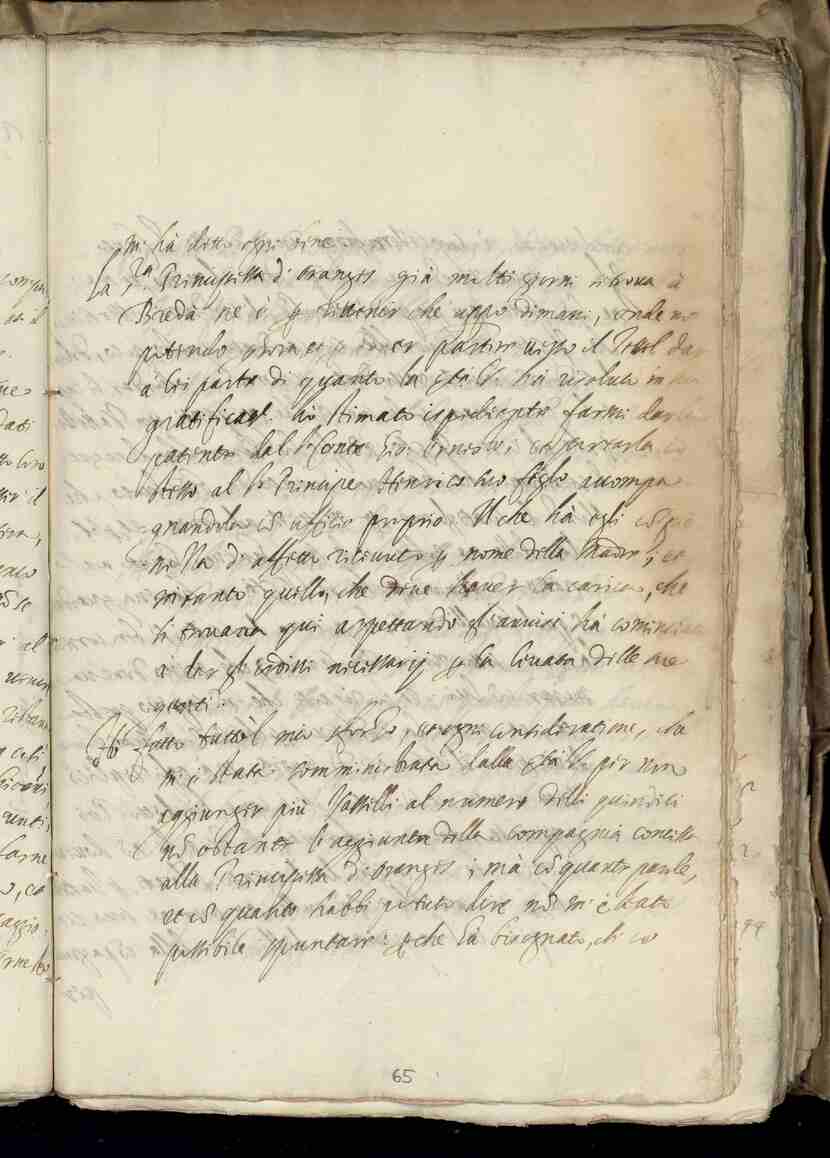 mi hà detto ogni bene.
La Sra Principessa d'Oranges già molti giorni si trova à
Bredà ne è per rittener che doppo dimani, onde no
potendo per hora et per dover partire visto il
à lei parte di quanto la Stà Va. hà risoluto in
gratificarla. hò stimato ispediente farmi dar la
patente dal Sr Conte Gio: Ernesto; et portarla io
stesso al Sr Principe Henrico suo figlo accompa
gnandola cō ufficio proprio. Il che hà egli cō
d'affetto ricevuto per nome della Madre; et
intanto quello, che deve haver la carica, che
si trovava qui aspettando gl'avvisi hà comincia
à dar gl'ordini necessarij per la levata delle
genti.
Hò fatto tutto'l mio sforzo, et ogni consideratione, che
m'è stata somministrata dalla Stà Va. per non
aggiunger più Vasselli al numero delli quindeci
nō ostante l'aggiunta della compagnia concessa
alla Principessa d'Oranges; mà cō quante parole,
et cō quanto habbi potuto dire nō m'è stato
possibile spuntare: perche hà bisognato, ch'io
per
65